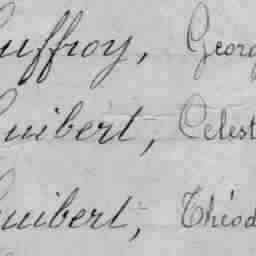 uffroy, Georg
uibert, Celest
uibert, Théod